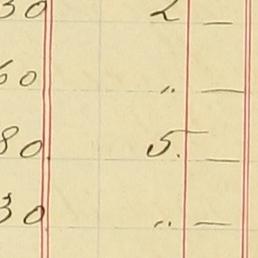 30 2 —
60 " —
80 5. —
30 " —